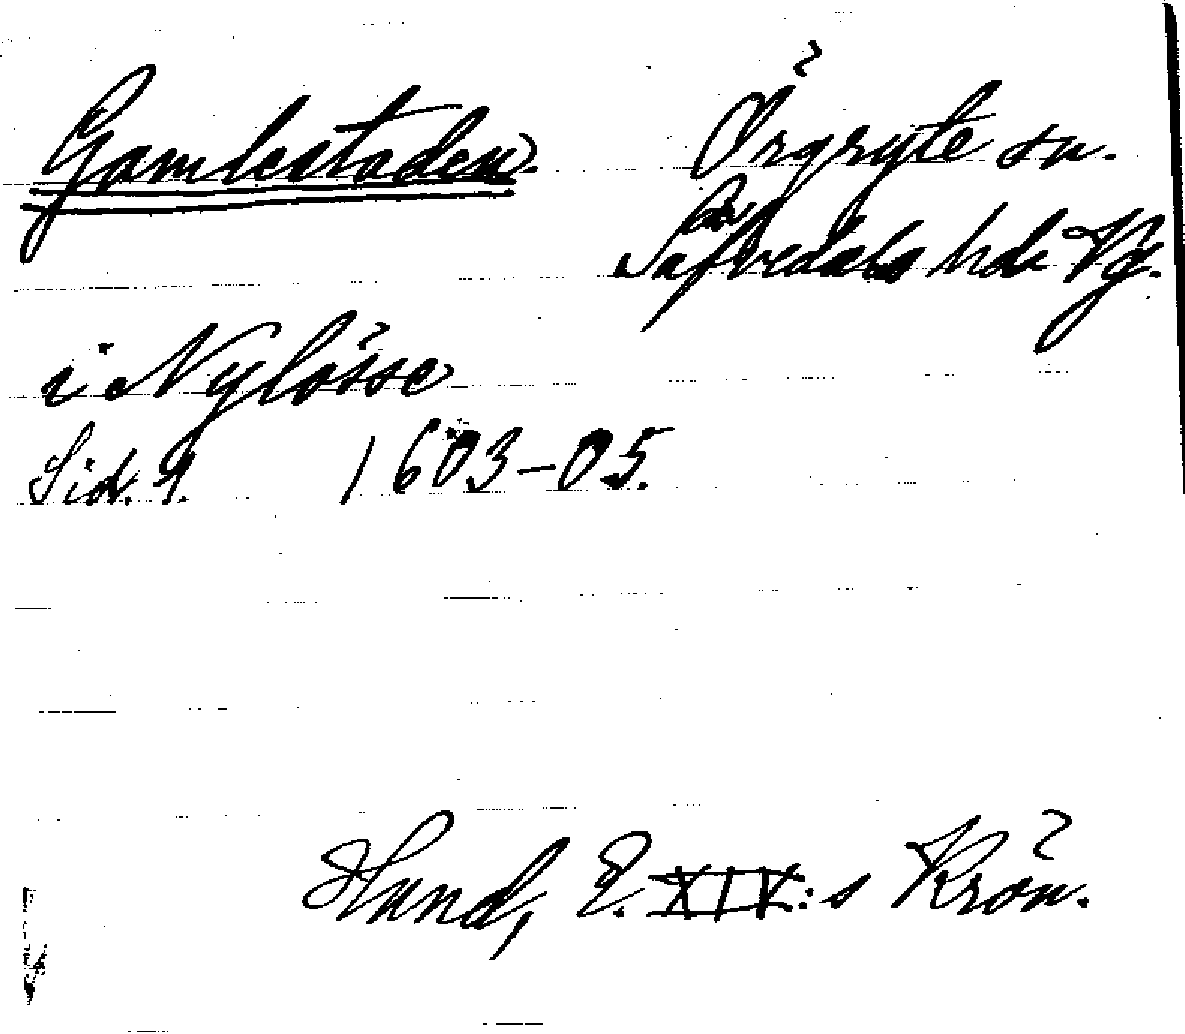 Gamlestaden. Örgryte sn.
Säfvedals hd. Vg.
i Nylösse
Sid. 9. 1603-05.
Hund, E. XIV:s Krön.